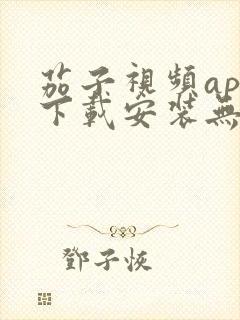 茄子視頻ap
下載安裝無
鄧子恢